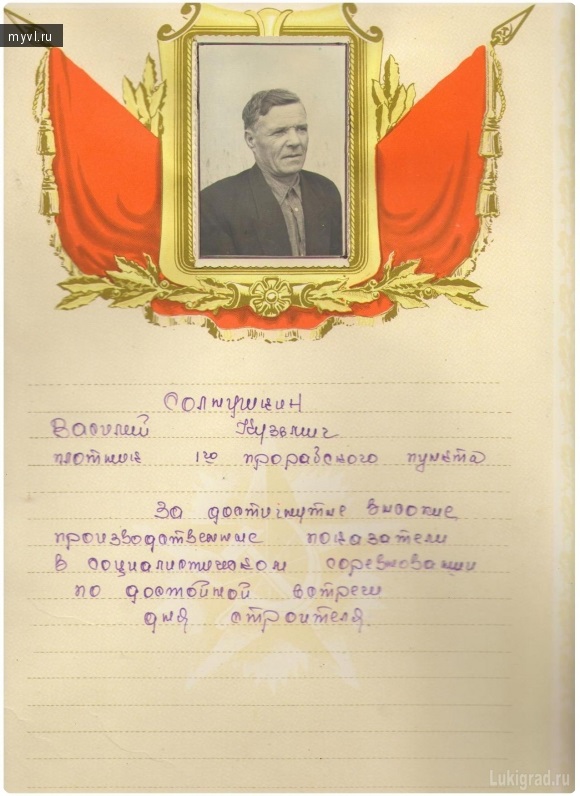 myvl.ru
Солнушкин
Василий Кузьмич
плотник 1го прорабского пункта
За достигнутые высокие
производственные показатели
в социалистическом соревновании
по достойной встречи
дня строителя.
Lukigrad.ru